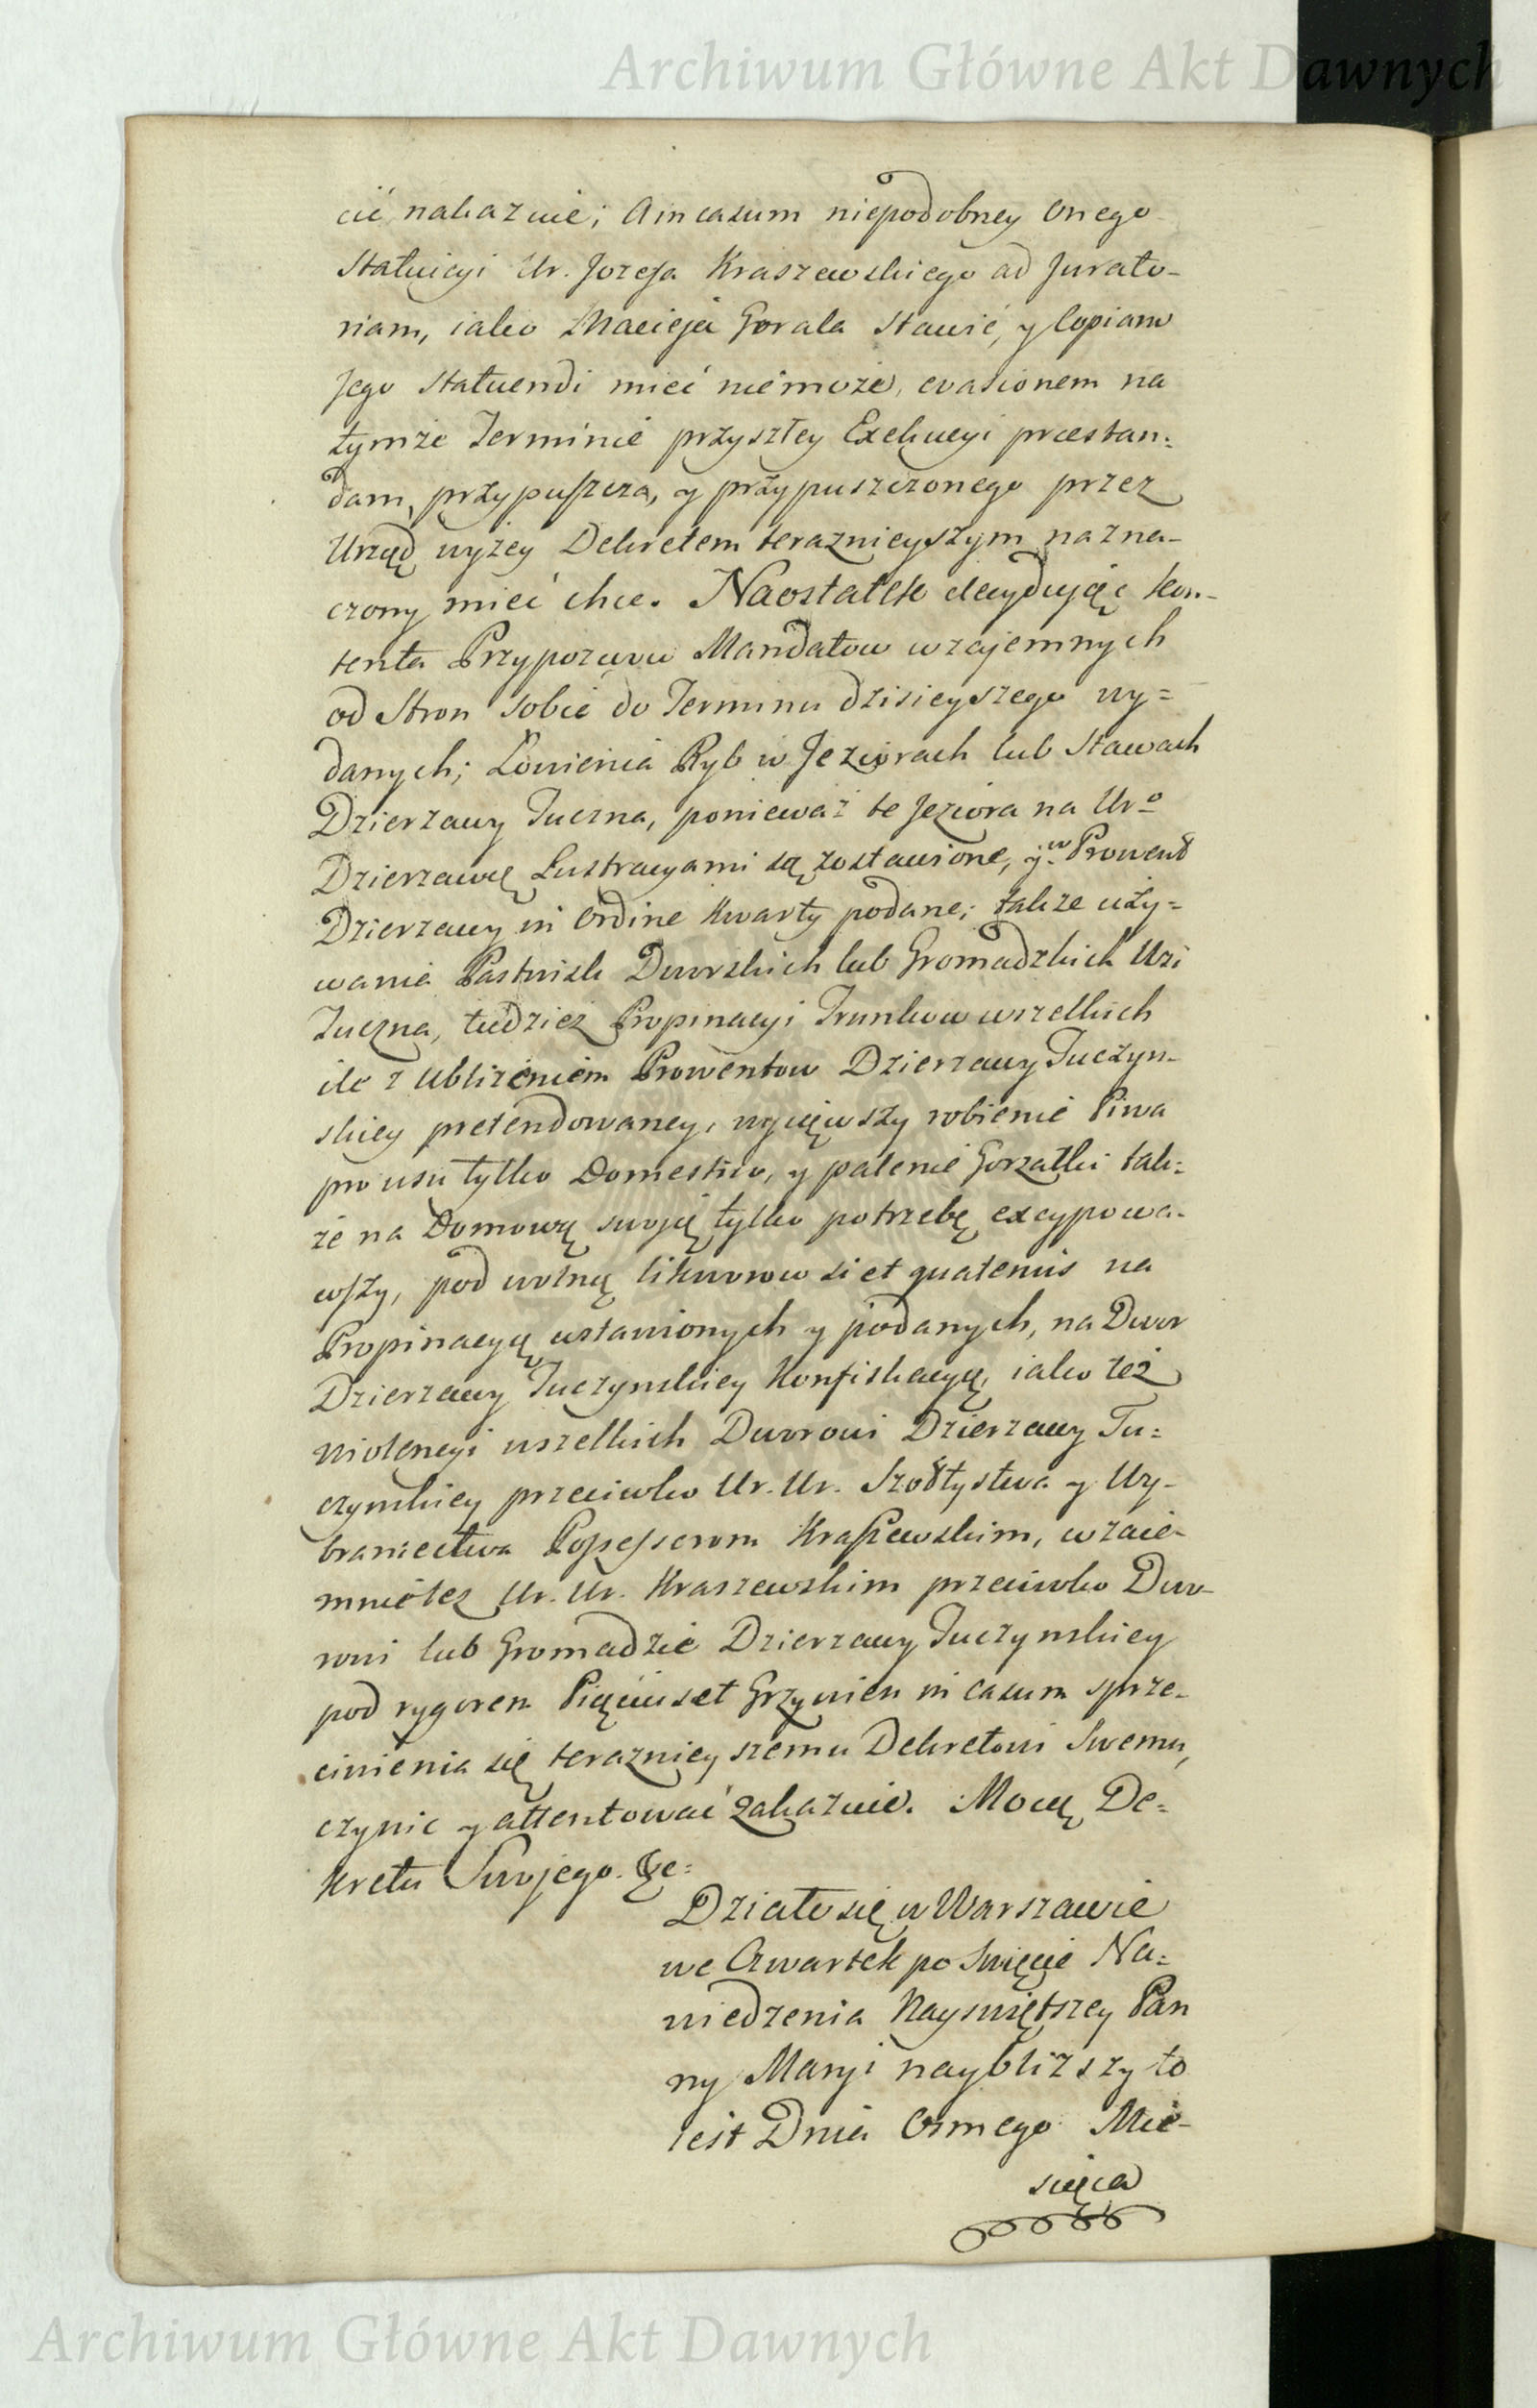 Archiwum Główne Akt Dawnych
cić nakazuie; A in casum niepodobney onego
Statuicyi Ur. Jozefa Kraszewskiego ad Jurato-
riam, iako Macieja Gorala Stawić, y Copiam
Jego Statuendi mieć niemoże, evasionem na
tymże Terminie przyszłey Exekucyi præstan=
dam, przypuszcza, y przypuszczonego przez
Urząd wyżey Dekretem teraznieyszym nazna-
czony mieć chce. Naostatek decydując kon-
tenta Przypozwu Mandatow wzajemnych
od Stron sobie do Terminu dzisieyszego wy=
danych; Łowienia Ryb w Jeziorach lub Stawach
Dzierzawy Tuczna, ponieważ te Jeziora na Ur:o
Dzierzawę Lustracyami są zostawione, y w Prowent
Dzierzawy in Ordine Kwarty podane; także uży=
wania Pastwisk Dworskich lub Gromadzkich Wsi
Tuczna, tudzież Propinacyi Trunkow wszelkich
ile z ubliżeniem Prowentow Dzierzawy Tuczyn-
skiey pretendowaney, wyiąwszy robienie Piwa
pro usu tylko Domestico, y palenie Gorzałki tak=
że na Domową swoję tylko potrzebę excypowa-
wszy, pod wolną likworow si et quatenus na
Propinacyą wstawionych y podanych, na Dwor
Dzierzawy Tuczynskiey Konfiskacyą, iako też
violencyi wszelkich Dworowi Dzierzawy Tu=
czynskiey przeciwko Ur. Ur. Szołtystwa y Wy-
braniectwa Possessorom Kraszewskim, wzaie-
mnie też Ur. Ur. Kraszewskim przeciwko Dwo-
rowi lub Gromadzie Dzierzawy Tuczynskiey
pod rygorem Pięciuset Grzywien in casum sprze-
ciwienia się teraznieyszemu Dekretowi Swemu,
czynic y attentować zakazuie. Mocą De=
kretu Swojego. &c:
Działo się w Warszawie
we Czwartek po Swięcie Na=
wiedzenia Nayswiętszey Pan
ny Maryi naybliższy to
iest Dnia Osmego Mie-
siąca
Archiwum Główne Akt Dawnych